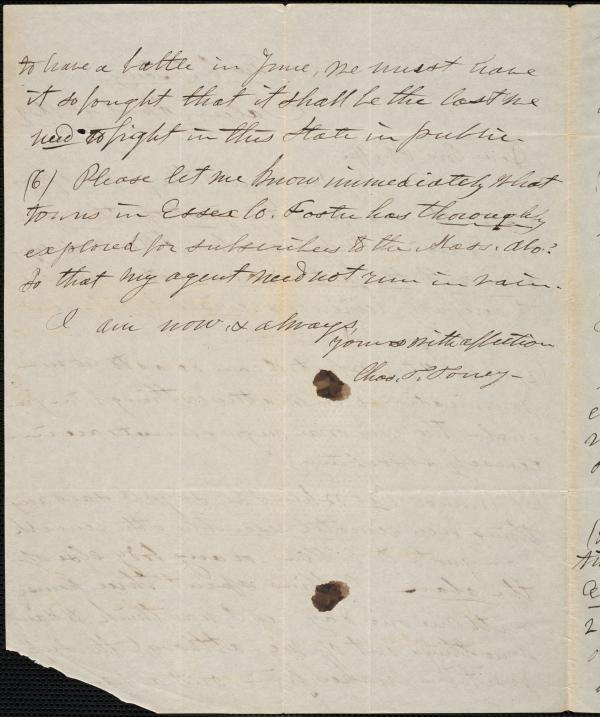 to have a battle in June, we must have
it so fought that it shall be the last we
need to fight in this State in public.
(6) Please let me know immediately what
towns in Essex Co. Foster has thoroughly
explored for subscribers to the Mass. Abo.?
So that my agent need not run in vain.
I am now, & always,
yours with affection
Chas. T. Torrey